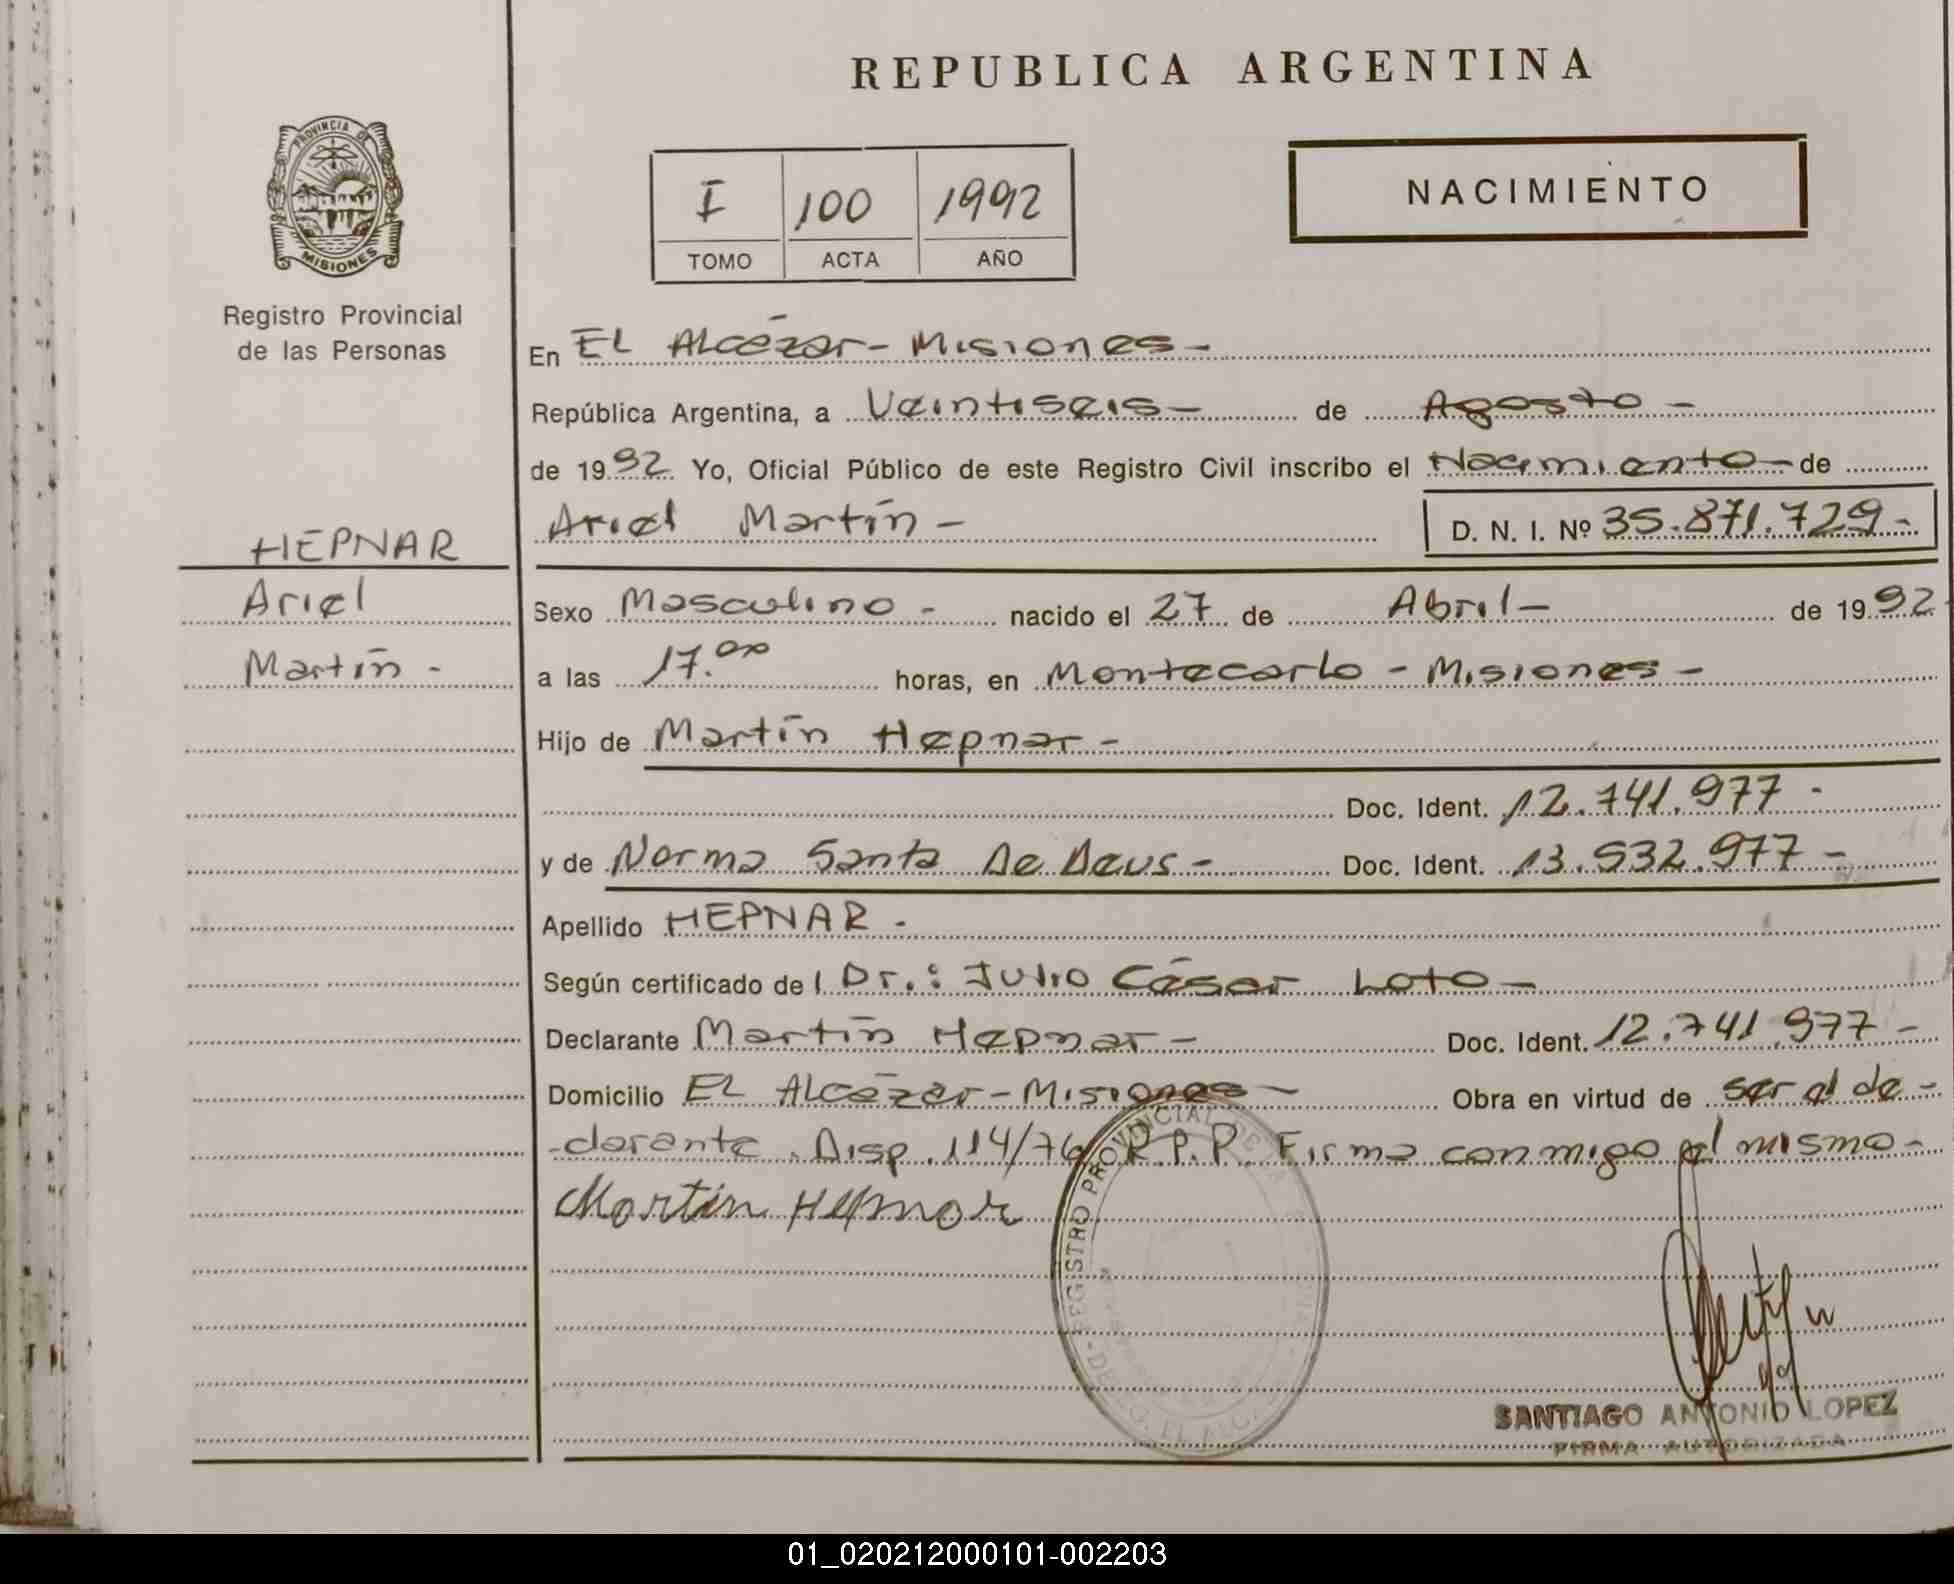 REPUBLICA ARGENTINA
PROVINCIA DE
MISIONES
Registro Provincial
de las Personas
I 100 1992
TOMO ACTA AÑO
NACIMIENTO
En El Alcázar - Misiones -
República Argentina, a Veintiseis - de Agosto -
de 1992 Yo, Oficial Público de este Registro Civil inscribo el Nacimiento - de
Ariel Martín - D. N. I. Nº 35.871.729 -
HEPNAR
Ariel
Martín -
Sexo Masculino - nacido el 27 de Abril - de 1992
a las 17.00 horas, en Montecarlo - Misiones -
Hijo de Martín Hepnar -
Doc. Ident. 12.741.977 -
y de Norma Santa De Deus - Doc. Ident. 13.532.977 -
Apellido HEPNAR -
Según certificado del Dr.: Julio César Loto -
Declarante Martín Hepnar - Doc. Ident. 12.741.977 -
Domicilio El Alcázar - Misiones - Obra en virtud de ser el de-
-clarante. Disp. 114/76 R.P.P. Firma conmigo el mismo -
Martin Hepnar
REGISTRO PROVINCIAL DE
SANTIAGO ANTONIO LOPEZ
FIRMA AUTORIZADA
01_020212000101-002203